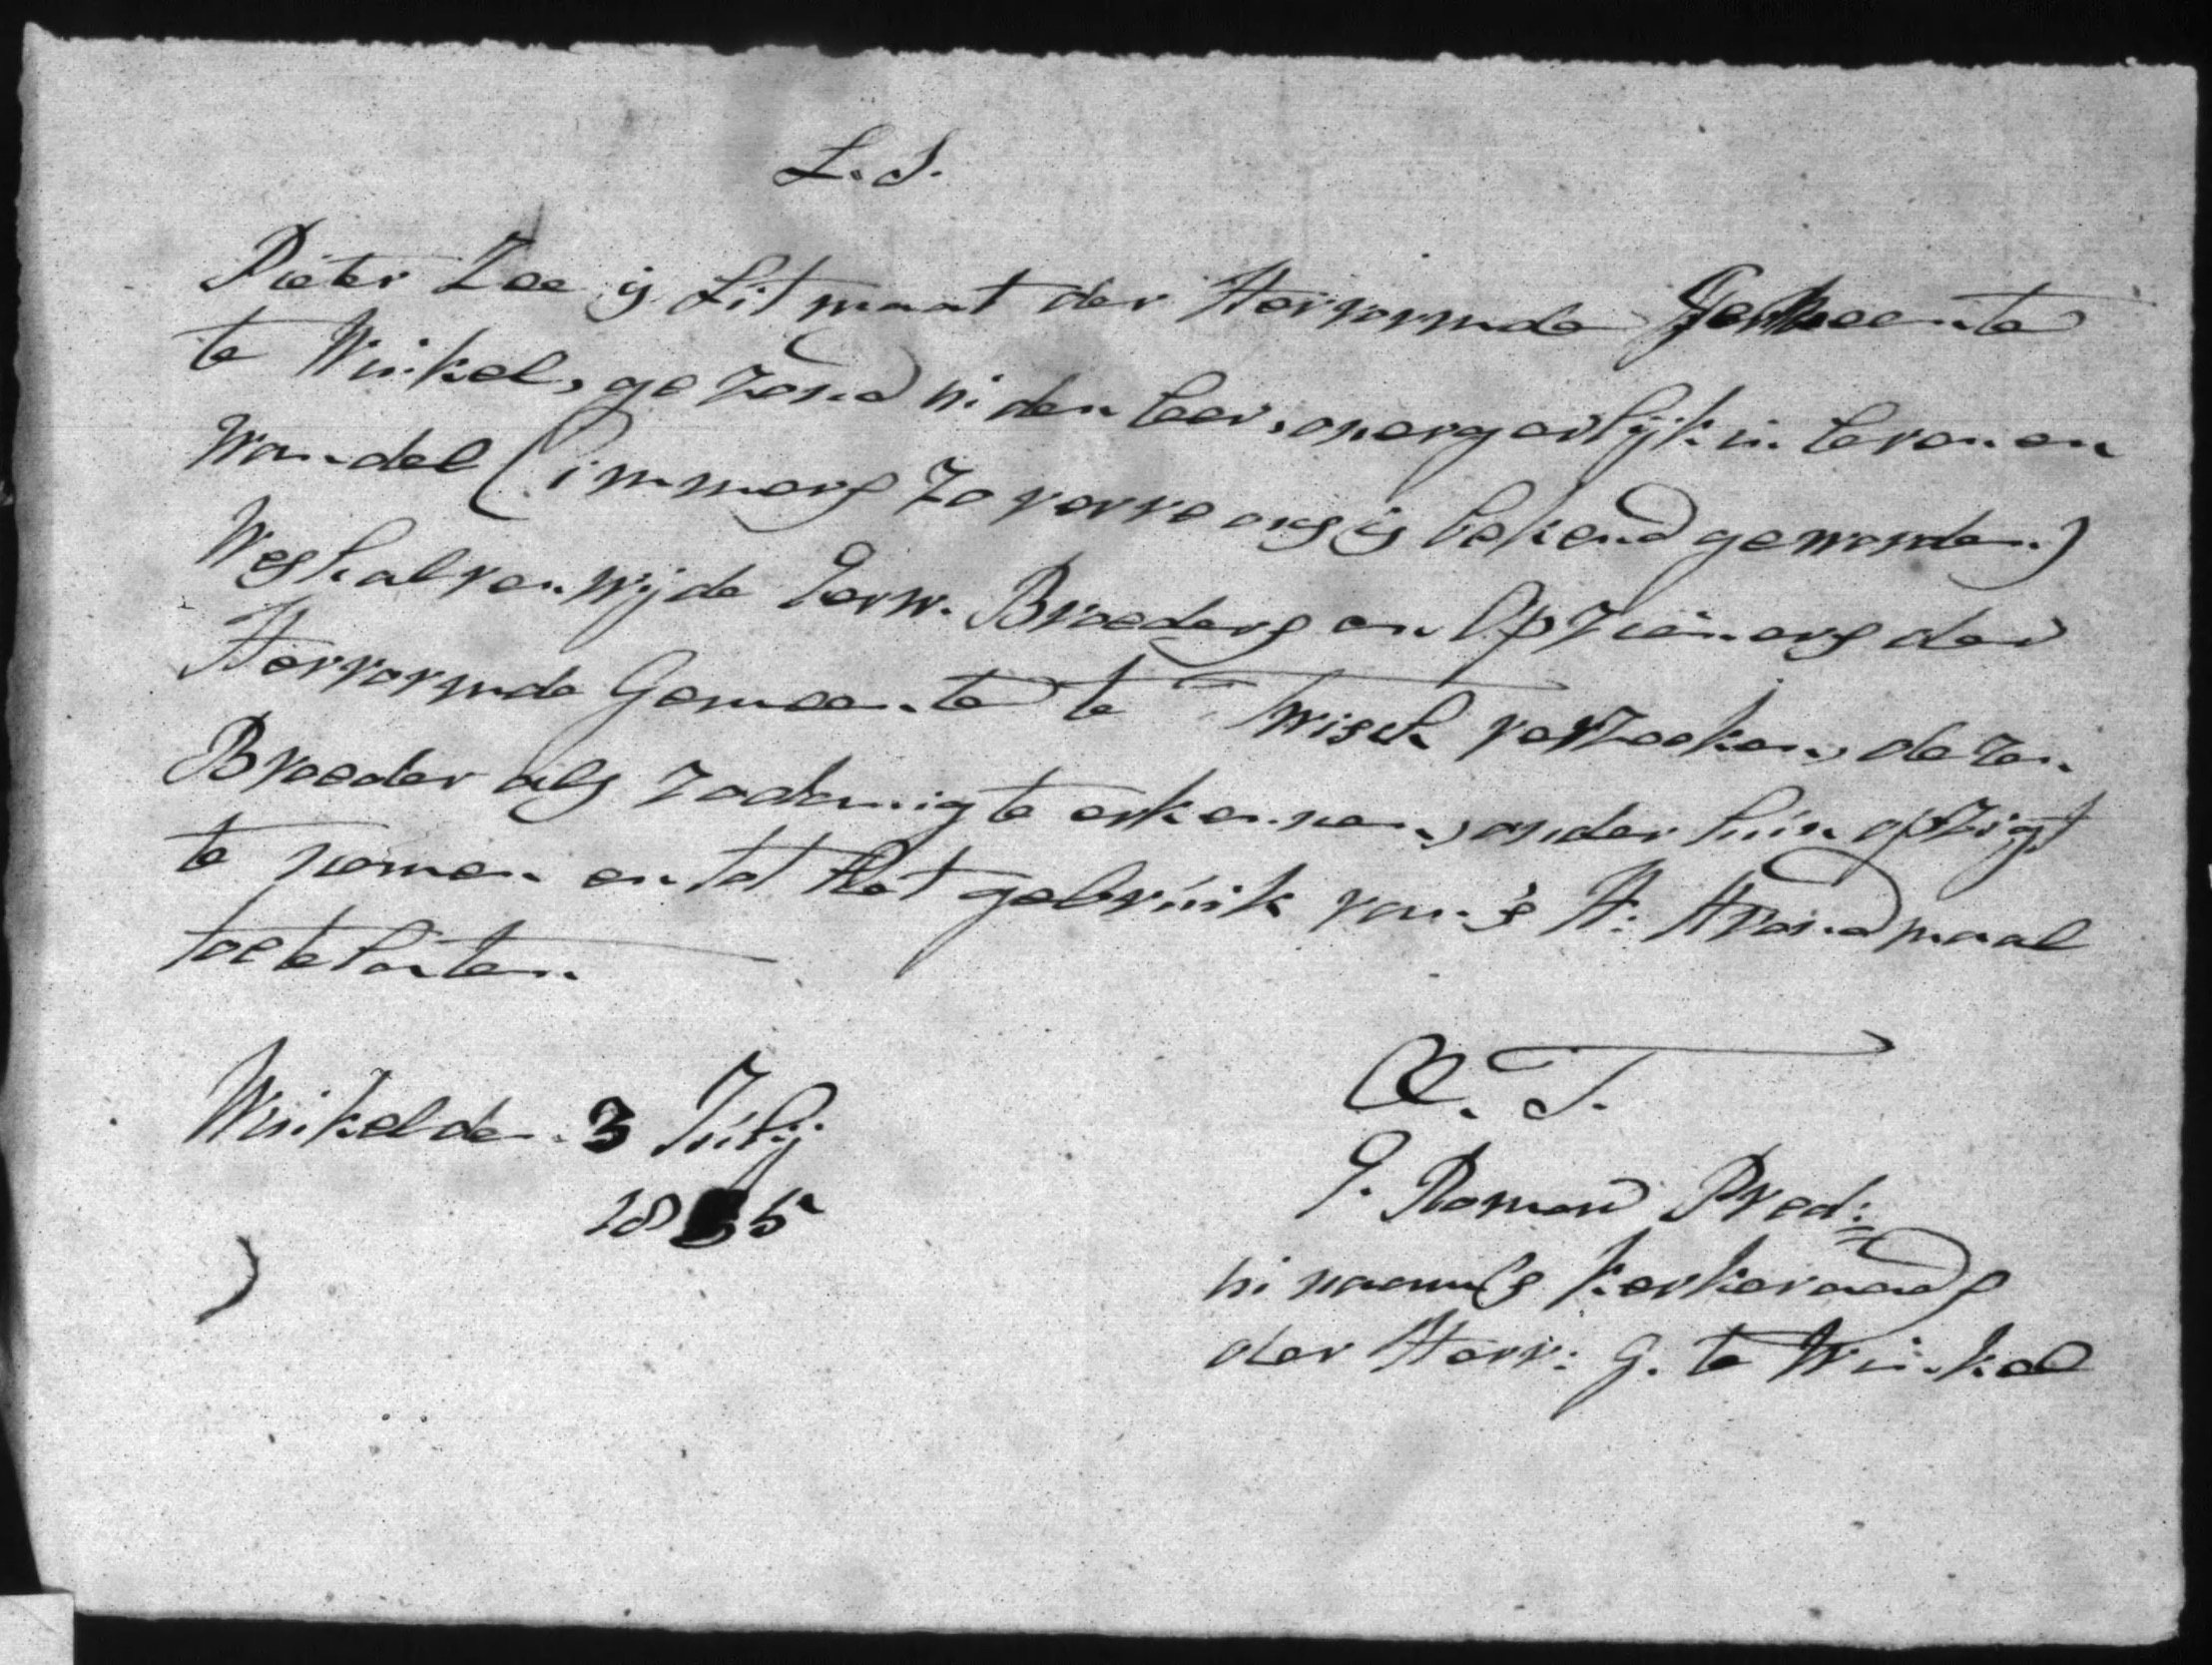 L. S.
Pieter Zee is Litmaat der Hervormde Gemeente
te Winkel, gezond in den leer, onergerlijk in leven en
Wandel (immers zo verre ons is bekend geworden)
Weshalven wij de Eerw. Broeders en Opzieners der
Hervormde Gemeente te Twisch verzoeken, dezen
Broeder als zodanig te erkennen, onder hún opzigt
te nemen en tot het gebrúik van 's H: Avondmaal
toe te laten.
Winkel den 3 Júlij
18 5
Q. T.
Roman Pred:
in naam 's Kerkeraads
der Herv: G. te Winkel